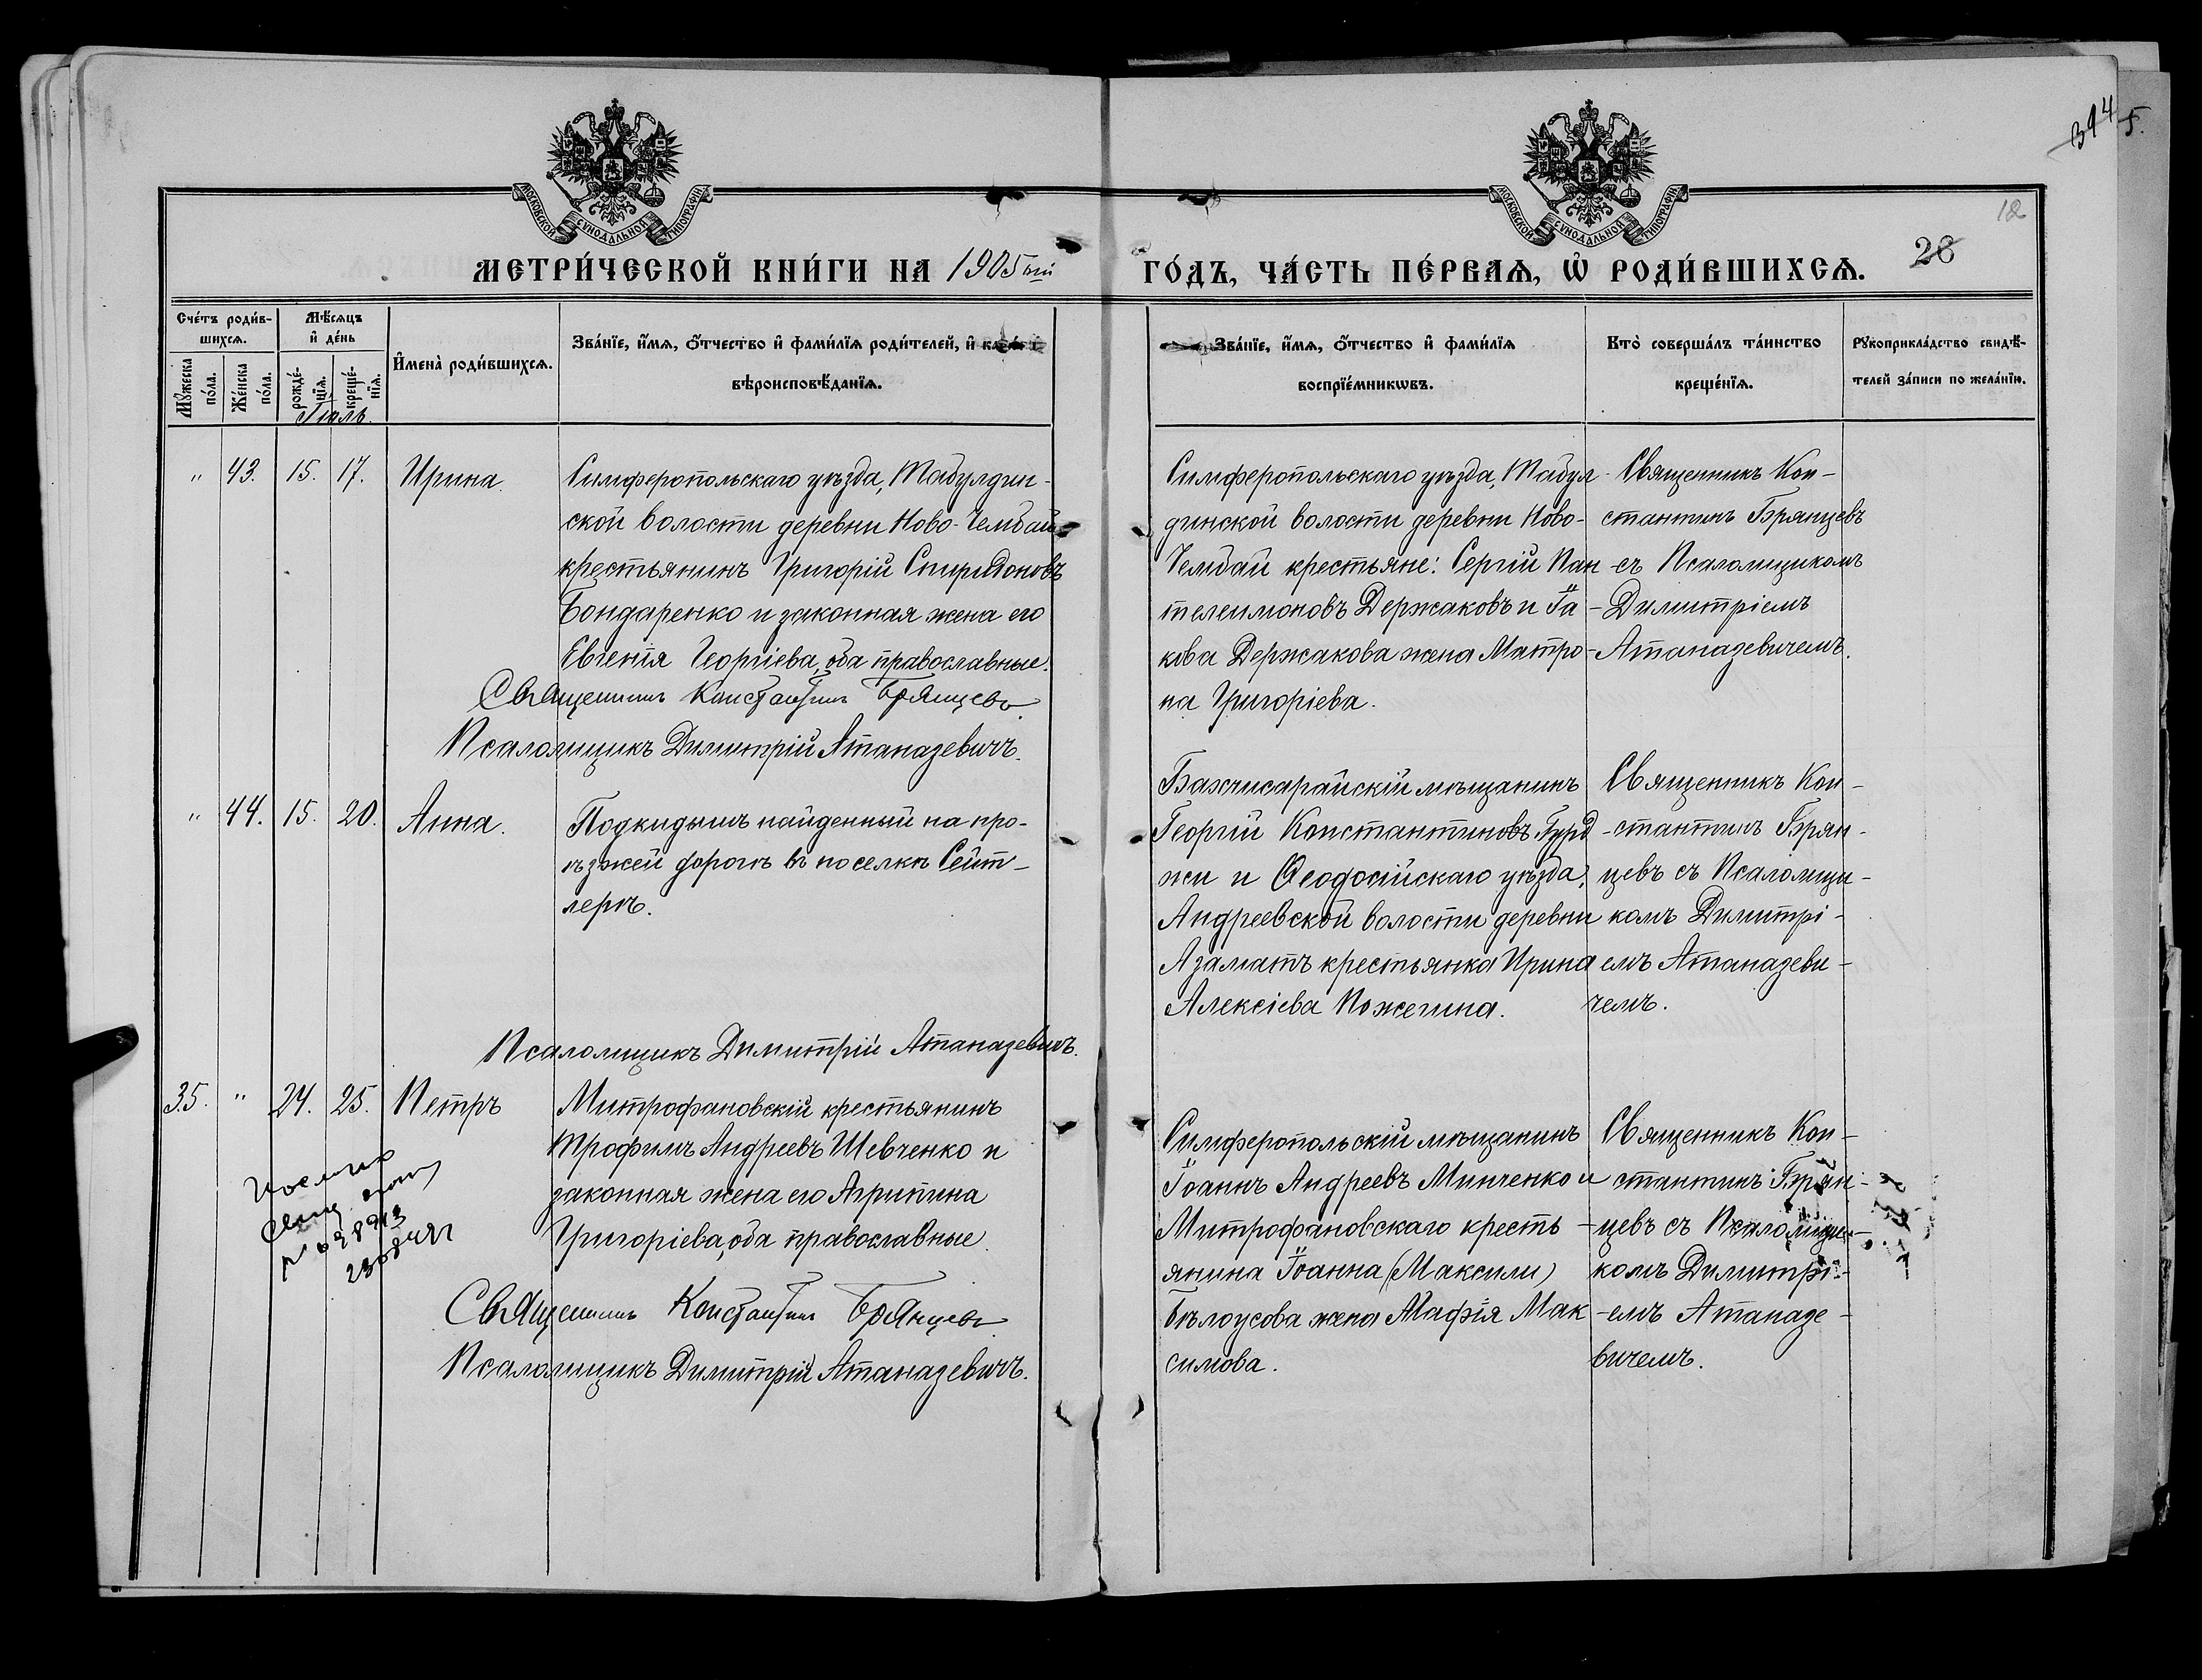 394
5.
12
26
МОСКОВСКОЙ СѴНОДАЛЬНОЙ ТИПОГРАФІИ
МОСКОВСКОЙ СѴНОДАЛЬНОЙ ТИПОГРАФІИ
МЕТРИ́ЧЕСКОЙ КНИ́ГИ НА 1905ый
ГО́ДЪ, ЧА́СТЬ ПЕ́РВАѦ, Ѡ҆ РОДИ́ВШИХСѦ.
Сче́тъ роди́в-
шихсѧ.
Мꙋжеска по́ла.
Же́нска по́ла.
Мѣ́сѧцъ
и҆ де́нь
рожде́-
нїѧ.
креще́-
нїѧ.
Іюль.
И҆мена̀ роди́вшихсѧ.
Зва́нїе, и҆́мѧ, ѻ҆́тчество и҆ фами́лїѧ роди́телей, и҆
вѣроисповѣ́данїѧ.
Зва́нїе, и҆́мѧ, ѻ҆́тчество и҆ фами́лїѧ
воспрїе́мникѡвъ.
Кто̀ соверша́лъ та́инство
креще́нїѧ.
Рꙋкоприкла́дство свидѣ́-
телей за́писи по жела́нїю.
" 43. 15. 17. Ирина.
Симферопольскаго уѣзда, Табулдин-
ской волости деревни Ново-Чембай
крестьянинъ Григорій Спиридоновъ
Бондаренко и законная жена его
Евгенія Георгіева, оба православные.
Священникъ Константинъ Брянцевъ
Псаломщикъ Димитрій Атаназевичъ.
Симферопольскаго уѣзда, Табул-
динской волости деревни Ново-
Чембай крестьяне: Сергій Пан
телеимоновъ Держаковъ и Іа-
кова Держакова жена Матро-
на Григоріева.
Священникъ Кон-
стантинъ Брянцевъ
съ Псаломщикомъ
Димитріемъ
Атаназевичемъ.
" 44. 15. 20. Анна.
Подкидышъ найденный на про-
ѣзжей дорогѣ въ поселкѣ Сейт-
лерѣ.
Псаломщикъ Димитрій Атаназевичъ.
Бахчисарайскій мѣщанинъ
Георгій Константиновъ Гурд-
жи и Ѳеодосійскаго уѣзда,
Андреевской волости деревни
Азаматъ крестьянка Ирина
Алексіева Пожегина.
Священникъ Кон-
стантинъ Брян-
цевъ съ Псаломщи-
комъ Димитрі-
емъ Атаназеви-
чемъ.
35. " 24. 25. Петръ
Митрофановскій крестьянинъ
Трофимъ Андреевъ Шевченко и
законная жена его Агрипина
Григоріева, оба православные.
Священникъ Константинъ Брянцевъ
Псаломщикъ Димитрій Атаназевичъ.
Симферопольскій мѣщанинъ
Іоаннъ Андреевъ Минченко и
Митрофановскаго кресть-
янина Іоанна (Максили)
Бѣлоусова жена Марія Мак-
симова.
Священникъ Кон-
стантинъ Брян-
цевъ съ Псаломщи-
комъ Димитрі-
емъ Атаназе-
вичемъ.